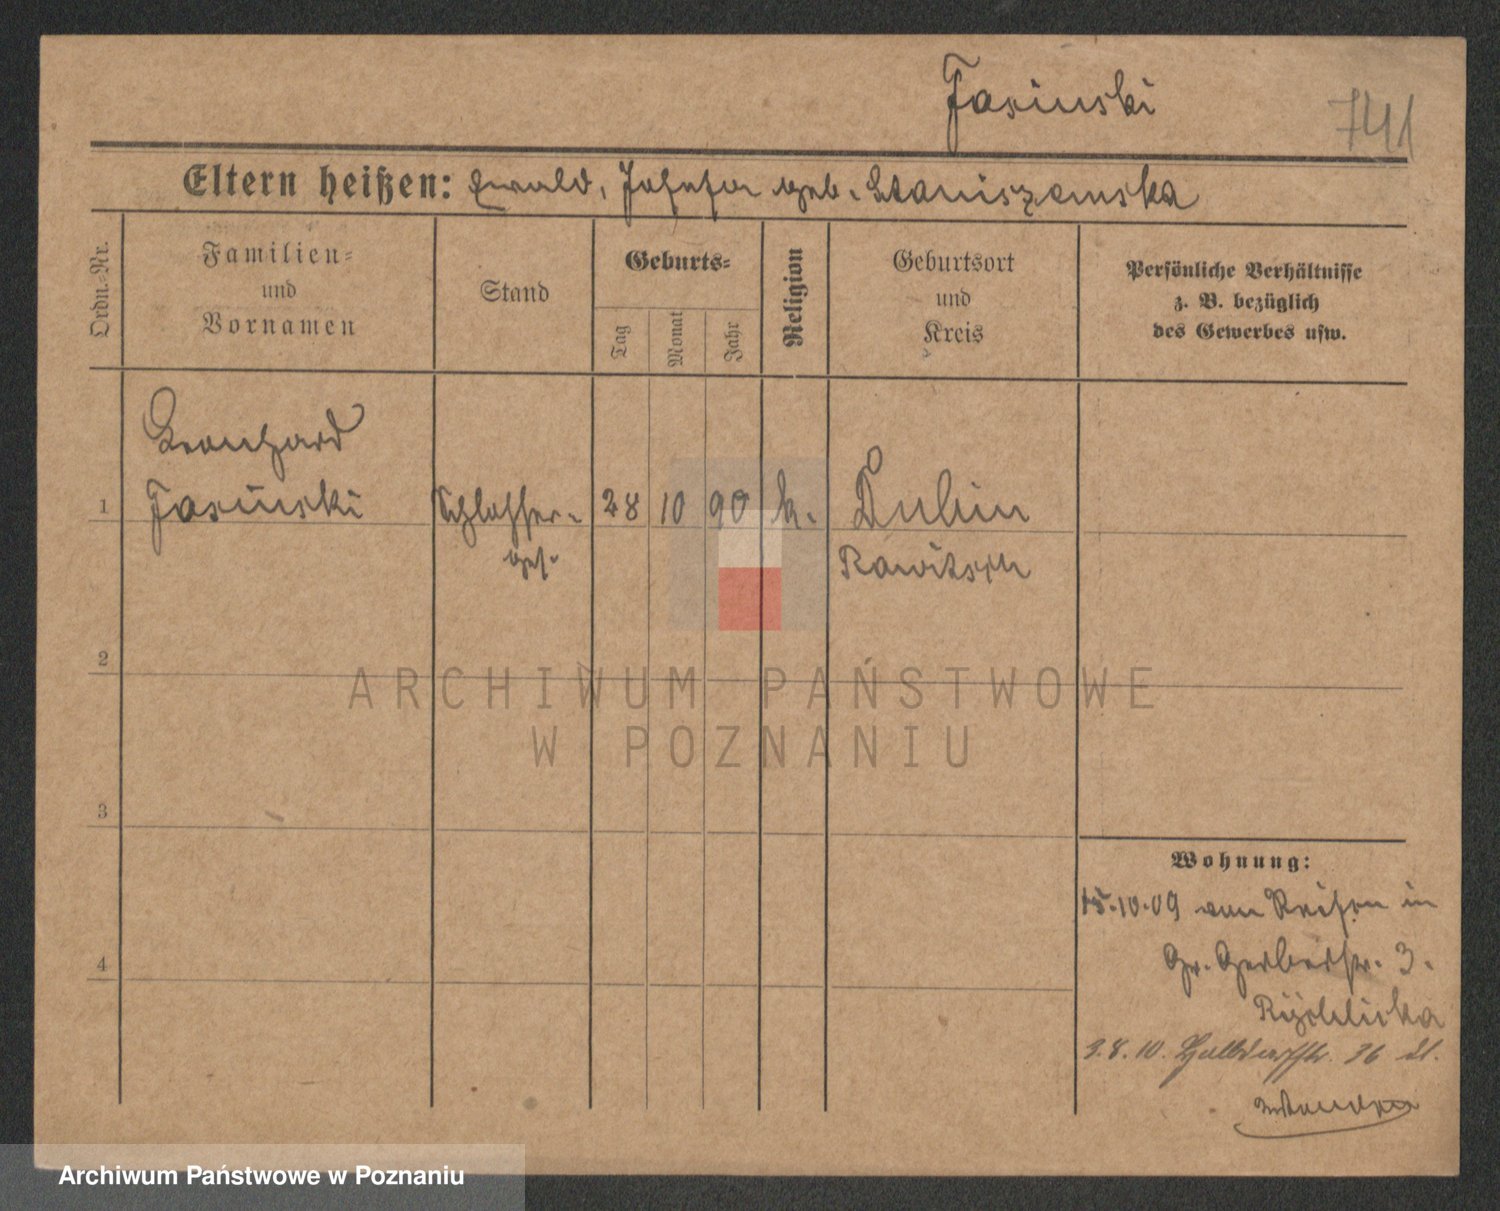 Jasinski
741
Eltern heißen: Ewald, Josefa geb. Staniszewska
Ordn.-Nr.
Familien-
und
Vornamen
Stand
Geburts-
Tag
Monat
Jahr
Religion
Geburtsort
und
Kreis
Persönliche Verhältnisse
z. B. bezüglich
des Gewerbes usw.
Leonhard
1 Jasinski Schlosser- 28 10 90 k. Dubin
ges. Rawitsch
2
ARCHIWUM PAŃSTWOWE
W POZNANIU
3
Wohnung:
15.10.09 von Reisen in
4
Gr. Gerberstr. 3.
3.8.10. Halbdorfstr. 36
Archiwum Państwowe w Poznaniu